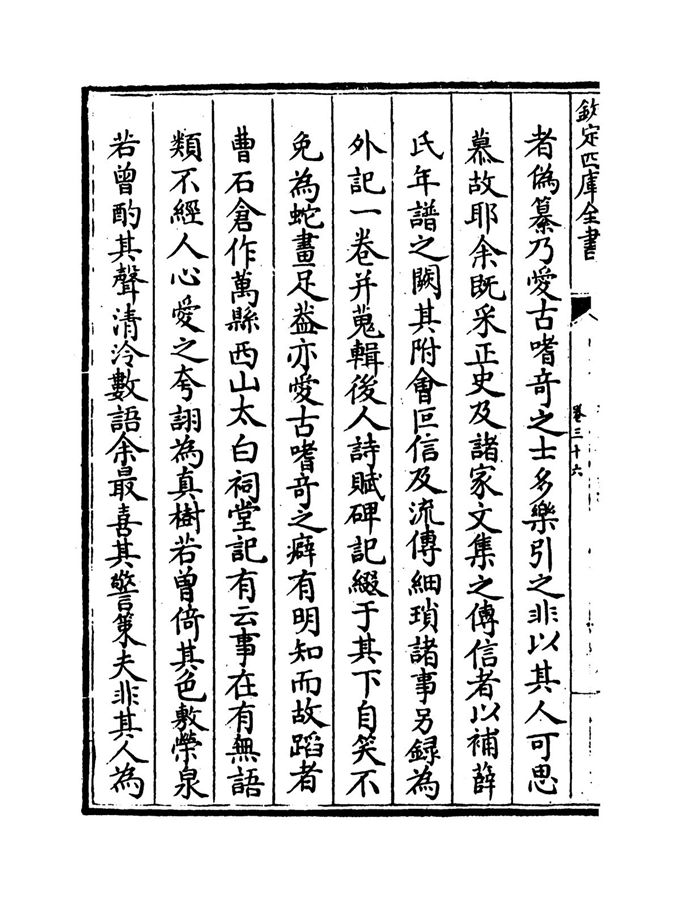 欽定四庫全書
卷三十六
者偽纂乃愛古嗜竒之士多樂引之非以其人可思
慕故耶余既采正史及諸家文集之傳信者以補薛
氏年譜之闕其附會叵信及流傳細瑣諸事另録為
外記一卷并蒐輯後人詩賦碑記綴于其下自笑不
免為蛇畫足葢亦愛古嗜竒之癖有明知而故蹈者
曹石倉作萬縣西山太白祠堂記有云事在有無語
類不經人心愛之夸詡為真樹若曾倚其色敷榮泉
若曾酌其聲清泠數語余最喜其警策夫非其人為